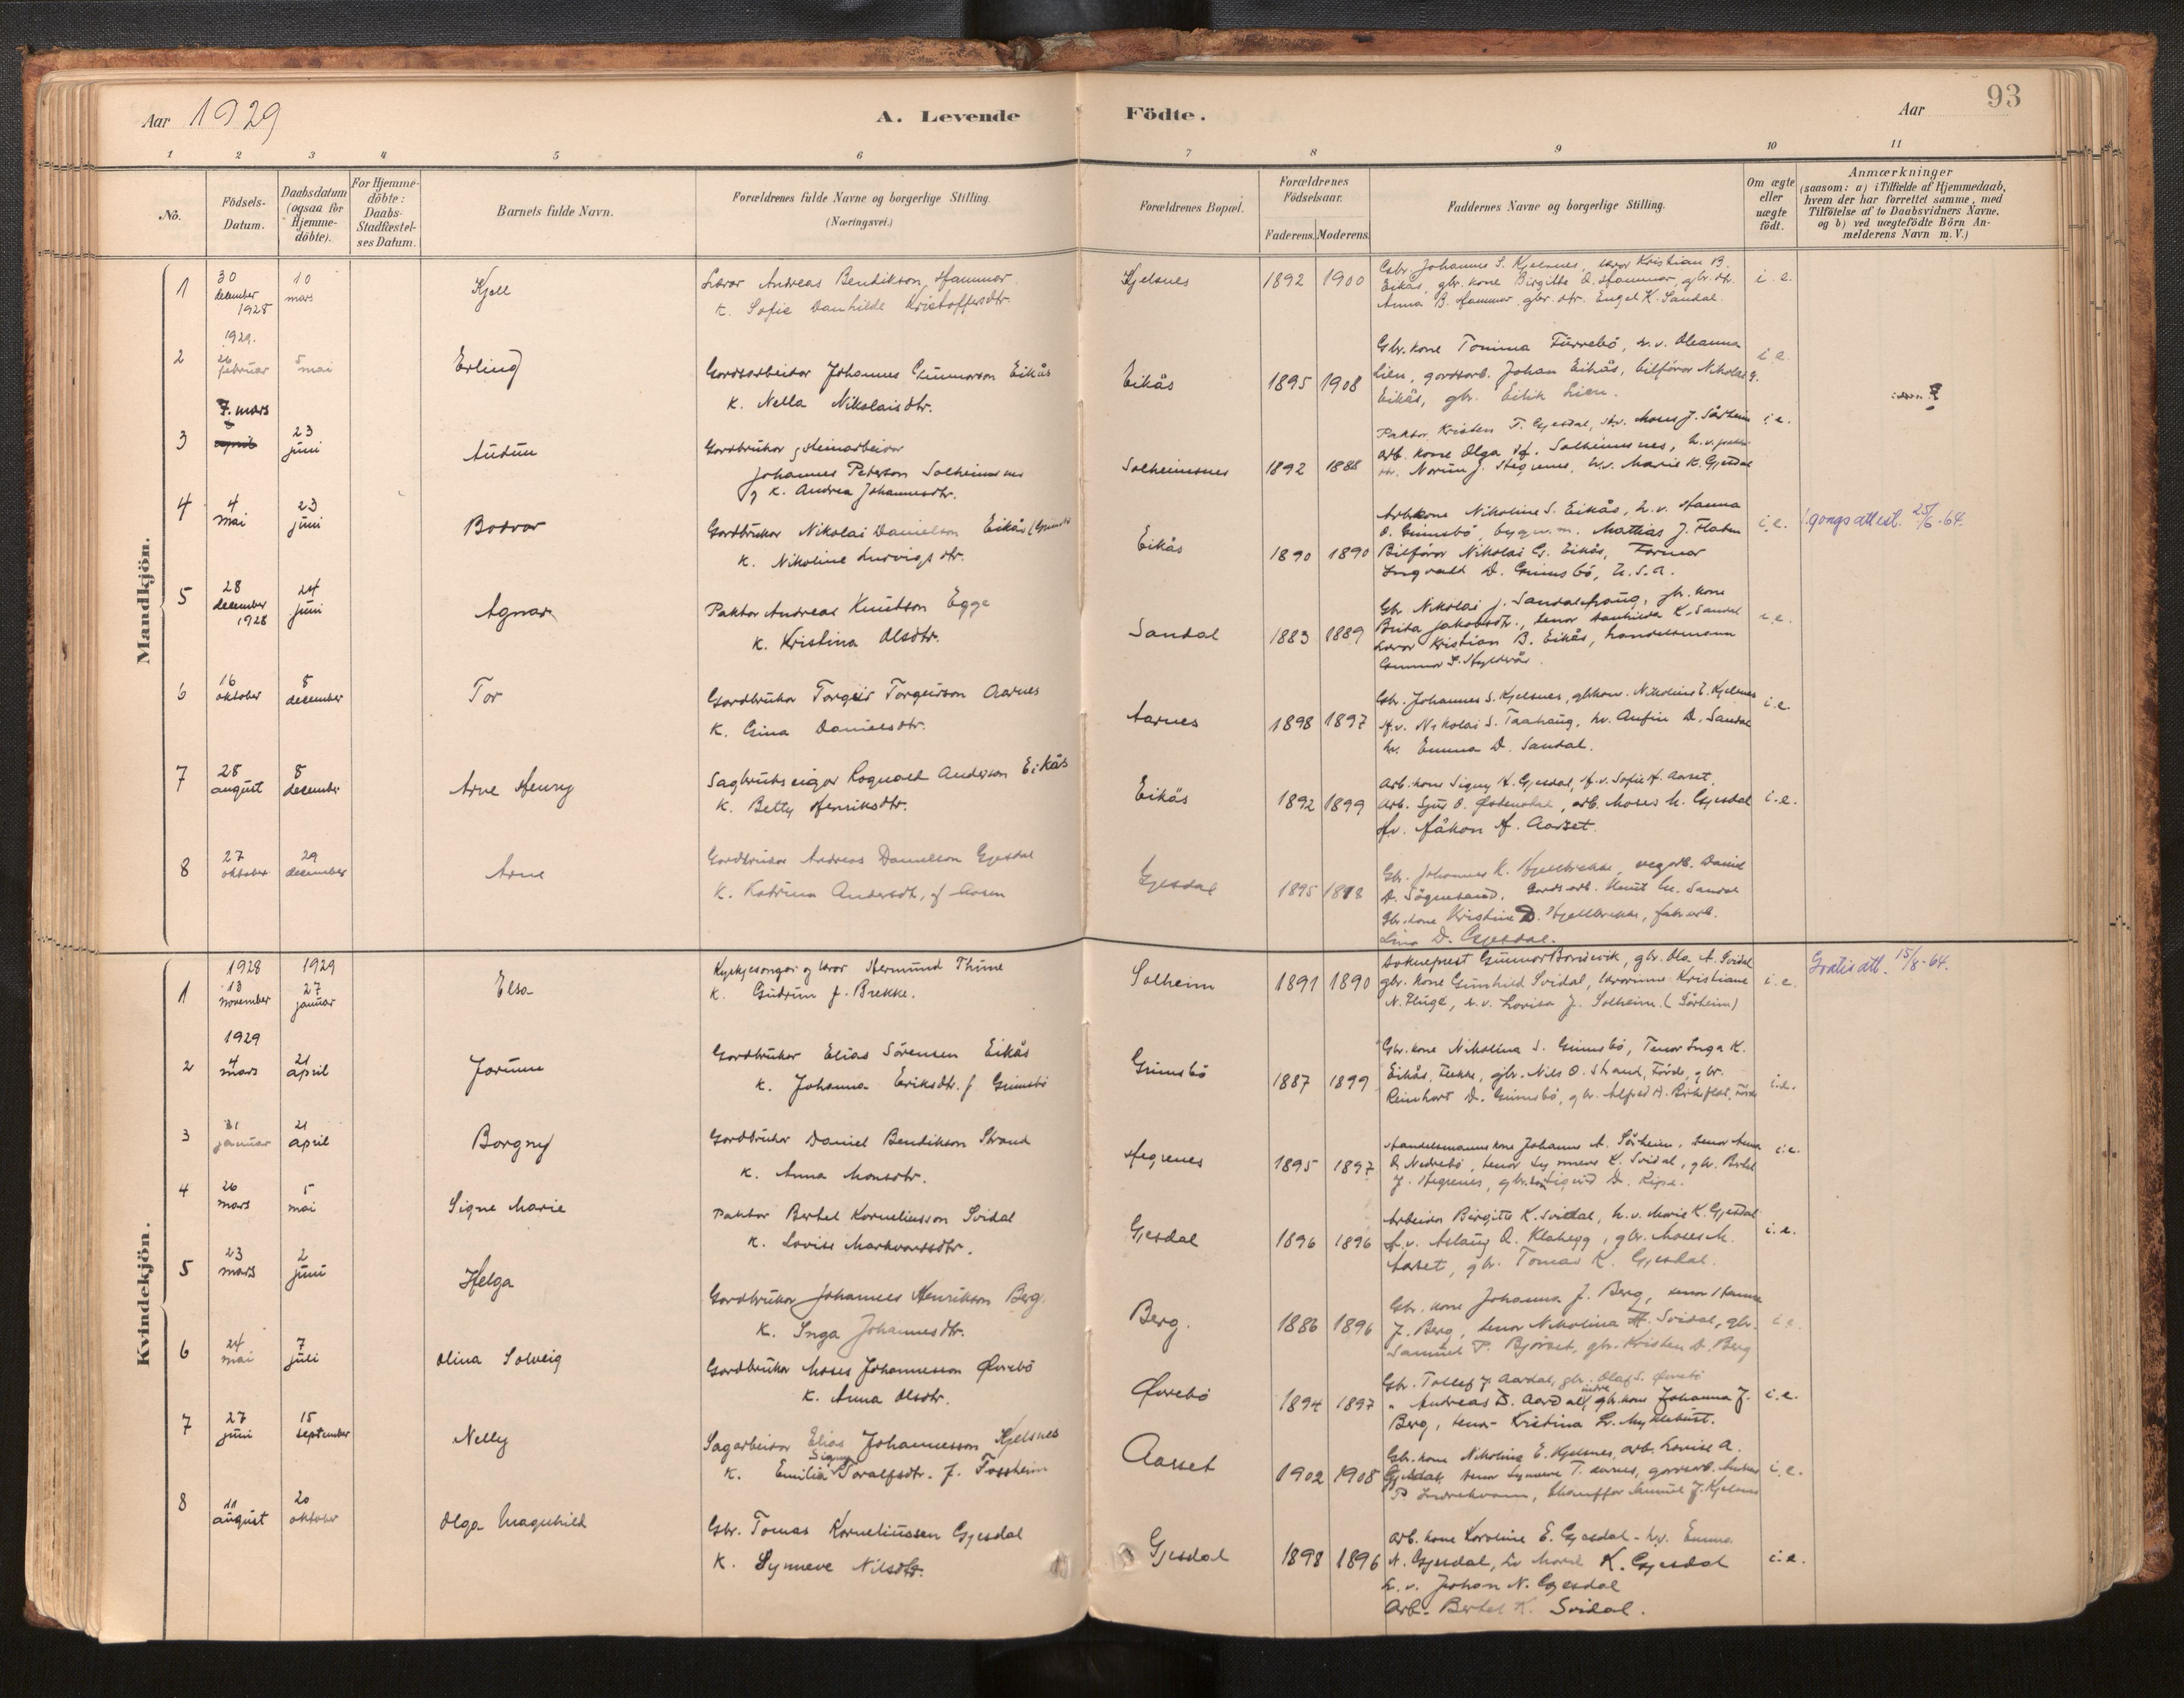 Aar 1929
A. Levende Födte.
Aar
93
1 2 3 4 5 6 7 8 9 10 11
Nö.
Födsels-Datum.
Daabsdatum (ogsaa for Hjemme-döbte).
For Hjemme-döbte: Daabs-Stadfæstel-ses Datum.
Barnets fulde Navn.
Forældrenes fulde Navne og borgerlige Stilling.
(Næringsvei.)
Forældrenes Bopæl.
Forældrenes Födselsaar.
Faderens. Moderens.
Faddernes Navne og borgerlige Stilling.
Om ægte eller uægte födt.
Anmærkninger
(saasom: a) i Tilfælde af Hjemmedaab,
hvem der har forrettet samme, med
Tilföielse af to Daabsvidners Navne.
og b) ved uægtefödte Börn An-
melderens Navn m. V.)
Mandkjön.
1 30 december 1928 10 mars Kjell
Lærar Andreas Bendikson Hammar
K. Sofie Danhilde Kristoffersdtr.
Kjelsnes 1892 1900
Gbr. Johannes S. Kjelsnes, lærar Kristian B.
Eikås, gbr. kone Birgitte A. Hammar, gbr. dtr.
Anna B. Hammar, gbr. dtr. Engel K. Sandal.
i. e.
1929.
2 26 februar 5 mai Erling
Gardsarbeidar Johannes Gunnarson Eikås
K. Nella Nikolaisdtr.
Eikås 1895 1908
Gbr. kone Tomina Furrebö, h.v. Oleanna
Lien, gardsarb. Johan Eikås, bilförar Nikolai G.
Eikås, gbr. Eilik Lien.
i.e.
3 7. mars april 23 juni Audun
Gardbrukar g steinarbeidar
Johannes Peterson Solheimsnes
g K. Andrea Johannesdtr.
Solheimsnes 1892 1888
Paktar Kristen T. Gjesdal, Moses J. Sårheim
arb. kone Olga H. Solheimsnes, h.v.
Norunn J. Hegrenes, h.v. Marie K. Gjesdal
i.e.
4 4 mai 23 juni Bodvar
Gardbrukar Nikolai Danielson Eikås
K. Nikoline Ludvigsdtr.
Eikås 1890 1890
Arb.kone Nikoline S. Eikås, h.v. Hanna
O. Grimsbö, bygn.m. Mattias J. Flaten
Bilförar Nikolai G. Eikås, Farmar
Ingvald D. Grimsbö, U.S.A.
i.e.
gongs attest. 25/6-64.
5 28 december 1928 24 juni Agnar
Paktar Andreas Knutson Egge
K. Kristina Olsdtr.
Sandal 1883 1889
Gbr. Nikolai J. Sandalshaug, gbr. kone
Brita Jakobsdtr., tenar Danhilda K. Sandal
Lærar Kristian B. Eikås, handelsmann
i.e.
6 16 oktober 8 december Tor
Gardbrukar Torgeir Torgeirson Aarnes
K. Gina Danielsdtr.
Aarnes 1898 1897
Gbr. Johannes S. Kjelsnes, gbkone. Nikoline E. Kjelsnes
H.v. Nikolai S. Taahaug, hv. Anfin D. Sandal
hv. Emma D. Sandal.
i.e.
7 28 august 8 december Arne Henry
Sagbrukseigar Rognald Anderson Eikås
K. Betty Henriksdtr.
Eikås 1892 1899
Arb. kone Signy H. Gjesdal, H.v. Sofie H. Aaset.
arb. Sjur O. , arb. Moses M. Gjesdal
Hv. Håkon H. Aaset.
i.e.
8 27 oktober 29 december Arne
Gardbrukar Andreas Danielson Gjesdal
K. Katrina Andersdtr, f Aasen
Gjesdal 1895 1898
Gbr. Johannes K. Hjellbrekke, vegarb. Daniel
D. Sögnesand. Gardsarb. Knut M. Sandal
Gbr. kone Kristine D. Hjellbrekke, fabr.arb.
Lina D. Gjesdal.
Kvindekjön.
1928 1929
1 13 november 27 januar Elsa
Kyrkjesongar og lærar Hermund Thune
K. Gudrun f. Brekke.
Solheim 1891 1890
Sokneprest Gunnar Bondevik, gbr. Ola A. Svidal
gbr. kone Gunhild Svidal, lærarinne Kristiane
N. Fluge, h.v. Lovisa J. Solheim (Sårheim)
i.e.
Gratis att. 15/8-64.
1929
2 4 mars 21 april Jorunn
Gardbrukar Elias Sörensen Eikås
K. Johanna Eriksdtr. f Grimsbö
Grimsbö 1887 1899
Gbr. kone Nikolina S. Grimsbö, Tenar Inga K.
Eikås, gbr. Nils O. Strand, Förde, gbr.
Reinhart D. Grimsbö, gbr. Alfred
i.e.
3 31 januar 21 april Borgny
Gardbrukar Daniel Bendikson Strand
K. Anna Monsdtr.
Hegrenes 1895 1897
Handelsmannskone Johanne A. Sårheim, tenar Anna
O. Nedrebö, tenar Synneve K. Svidal, gbr. Bertel
J. Hegrenes, gbr. Sigurd D. Ripe.
i.e.
4 26 mars 5 mai Signe Marie
Paktar Bertel Korneliusson Svidal
K. Lovise Markvardsdtr.
Gjesdal 1896 1896
Arbeidar Birgitte K. Svidal, h.v. Marie K. Gjesdal
H.v. Aslaug A. Klakegg, gbr. Moses M.
Aaset, gbr. Tomas K. Gjesdal.
i.e.
5 23 mars 2 juni Helga
Gardbrukar Johannes Henrikson Berg.
K. Inga Johannesdtr.
Berg. 1886 1896
Gbr. kone Johanna J. Berg, tenar Hanna
J. Berg, tenar Nikolina H. Svidal, gbr.
Samuel P. Björset, gbr. Kristen D. Berg
i e.
6 24 mai 7 juli Olina Solveig
Gardbrukar Moses Johannesson Övrebö
K. Anna Olsdtr.
Øvrebö 1894 1897
Gbr. Tollef J. Aardal, gbr. Olaf S. Övrebö
" Andreas D. Aardal indre, gbr. kone Johanna J.
Berg, tenar Kristina L. Myklebust.
i.e.
7 27 juni 15 september Nelly
Sagarbeidar Elias Johannesson Kjelsnes
K. Emilia Signy Toralfsdtr. f. Fossheim
Aasset 1902 1908
Gbr. kone Nikoline E. Kjelsnes, arb. Lovise A.
Gjesdal, tenar Synneve T. Aarnes, gardsarb. Andreas
P. Indrekvam, Chauffør Samuel J. Kjelsnes
i.e.
8 11 august 20 oktober Olga Magnhild
Gbr. Tomas Korneliussen Gjesdal
K. Synneve Nilsdtr.
Gjesdal 1898 1896
Arb. kone Karoline E. Gjesdal - h.v. Emma
N. Gjesdal, K. Gjesdal
h.v. Johan N. Gjesdal
Arb. Bertel K. Svidal.
i.e.